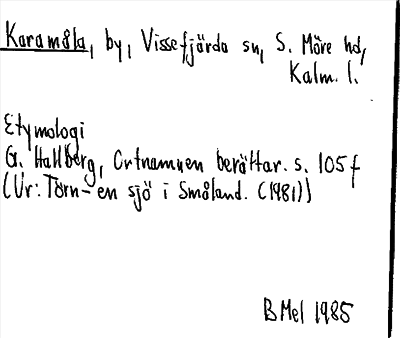 Karamåla, by, Vissefjärda sn, S. Möre hd,
Kalm. l.
Etymologi
G. Hallberg, Ortnamnen berättar. s. 105f
(Ur: Törn - en sjö i Småland. (1981))
BMel 1985